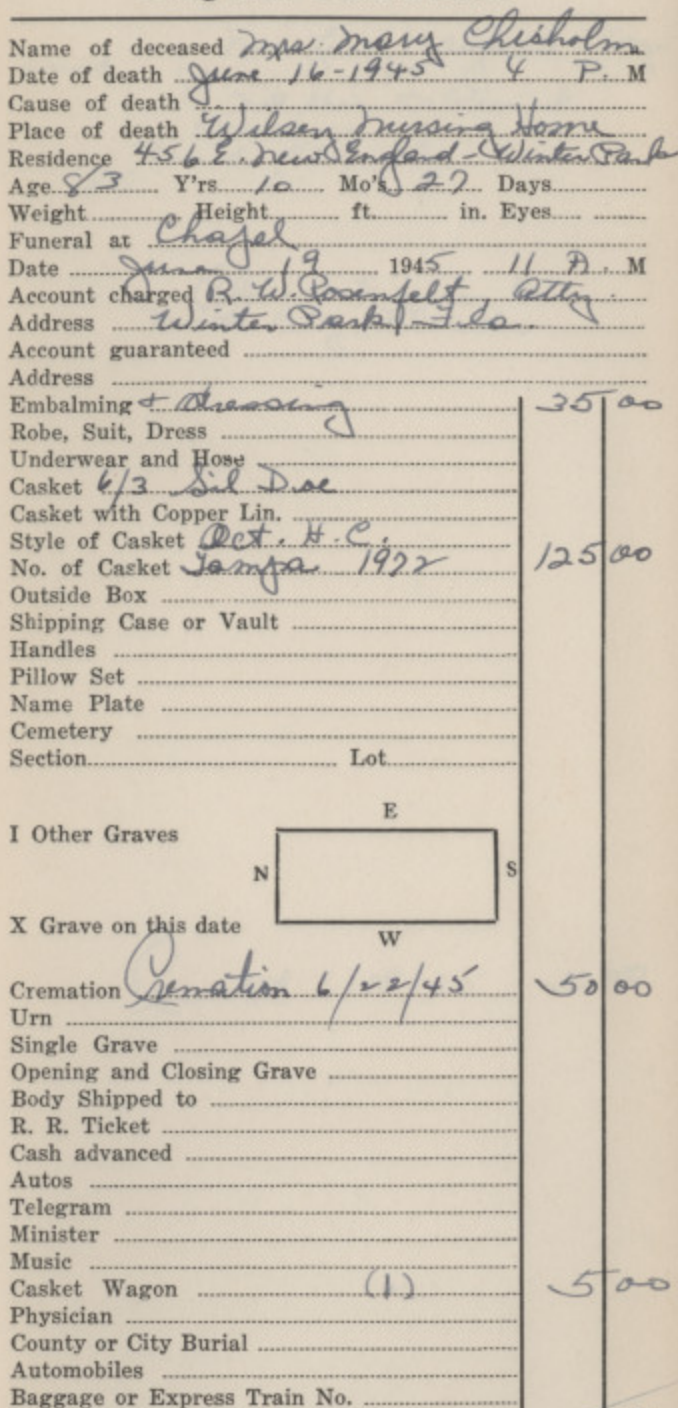 Name of deceased Mrs. Mary Chisholm
Date of death June 16-1945 4 P. M
Cause of death
Place of death Wilsen Nursing Home
Residence 456 E. New England - Winter Park
Age 83 Y'rs 10 Mo's 27 Days
Weight Height ft. in. Eyes
Funeral at Chapel
Date June 19 1945 11 A. M
Account charged R. W. Rosenfelt, Atty.
Address Winter Park - Fla.
Account guaranteed
Address
Embalming & dressing 35 00
Robe, Suit, Dress
Underwear and Hose
Casket 6/3 Sil Doe
Casket with Copper Lin.
Style of Casket Oct. H. C.
No. of Casket Tampa 1922 125 00
Outside Box
Shipping Case or Vault
Handles
Pillow Set
Name Plate
Cemetery
Section Lot
E
I Other Graves
N S
X Grave on this date
W
Cremation Cremation 6/22/45 50 00
Urn
Single Grave
Opening and Closing Grave
Body Shipped to
R. R. Ticket
Cash advanced
Autos
Telegram
Minister
Music
Casket Wagon (1) 5 00
Physician
County or City Burial
Automobiles
Baggage or Express Train No.